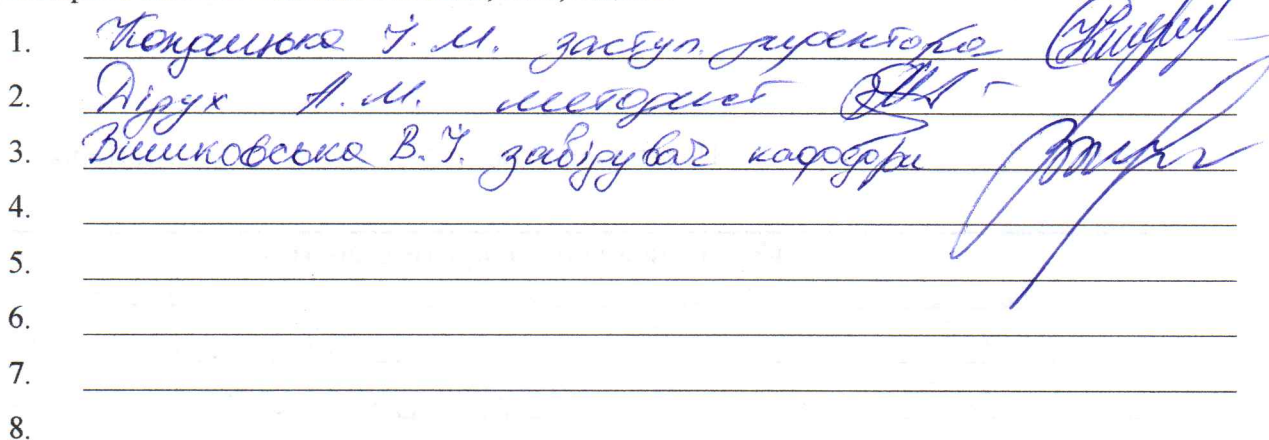 1. Кондицька І. М. заступ. директора
2. Дідух А. М. методист
3. Вишковська В. І. завідувач кафедри
4.
5.
6.
7.
8.